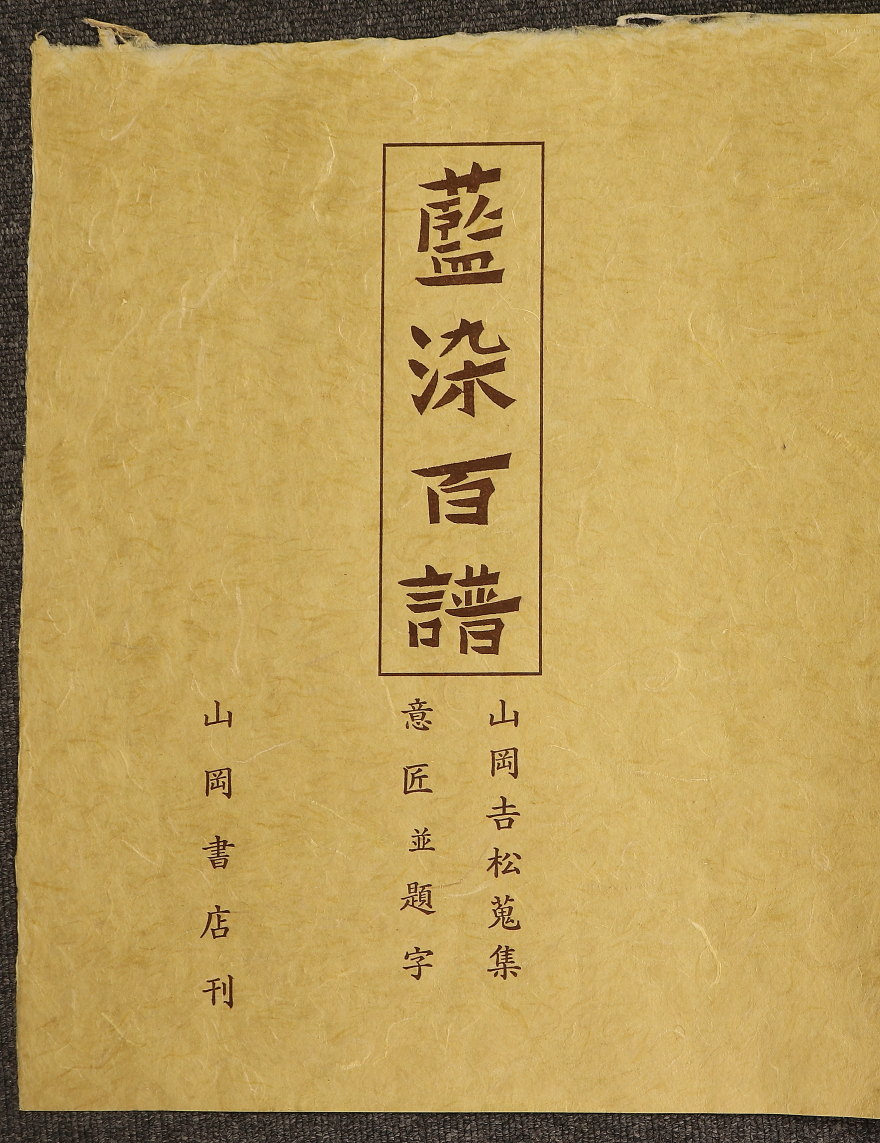 藍染百譜
山岡𠮷松蒐集
意匠並題字
山岡書店刊